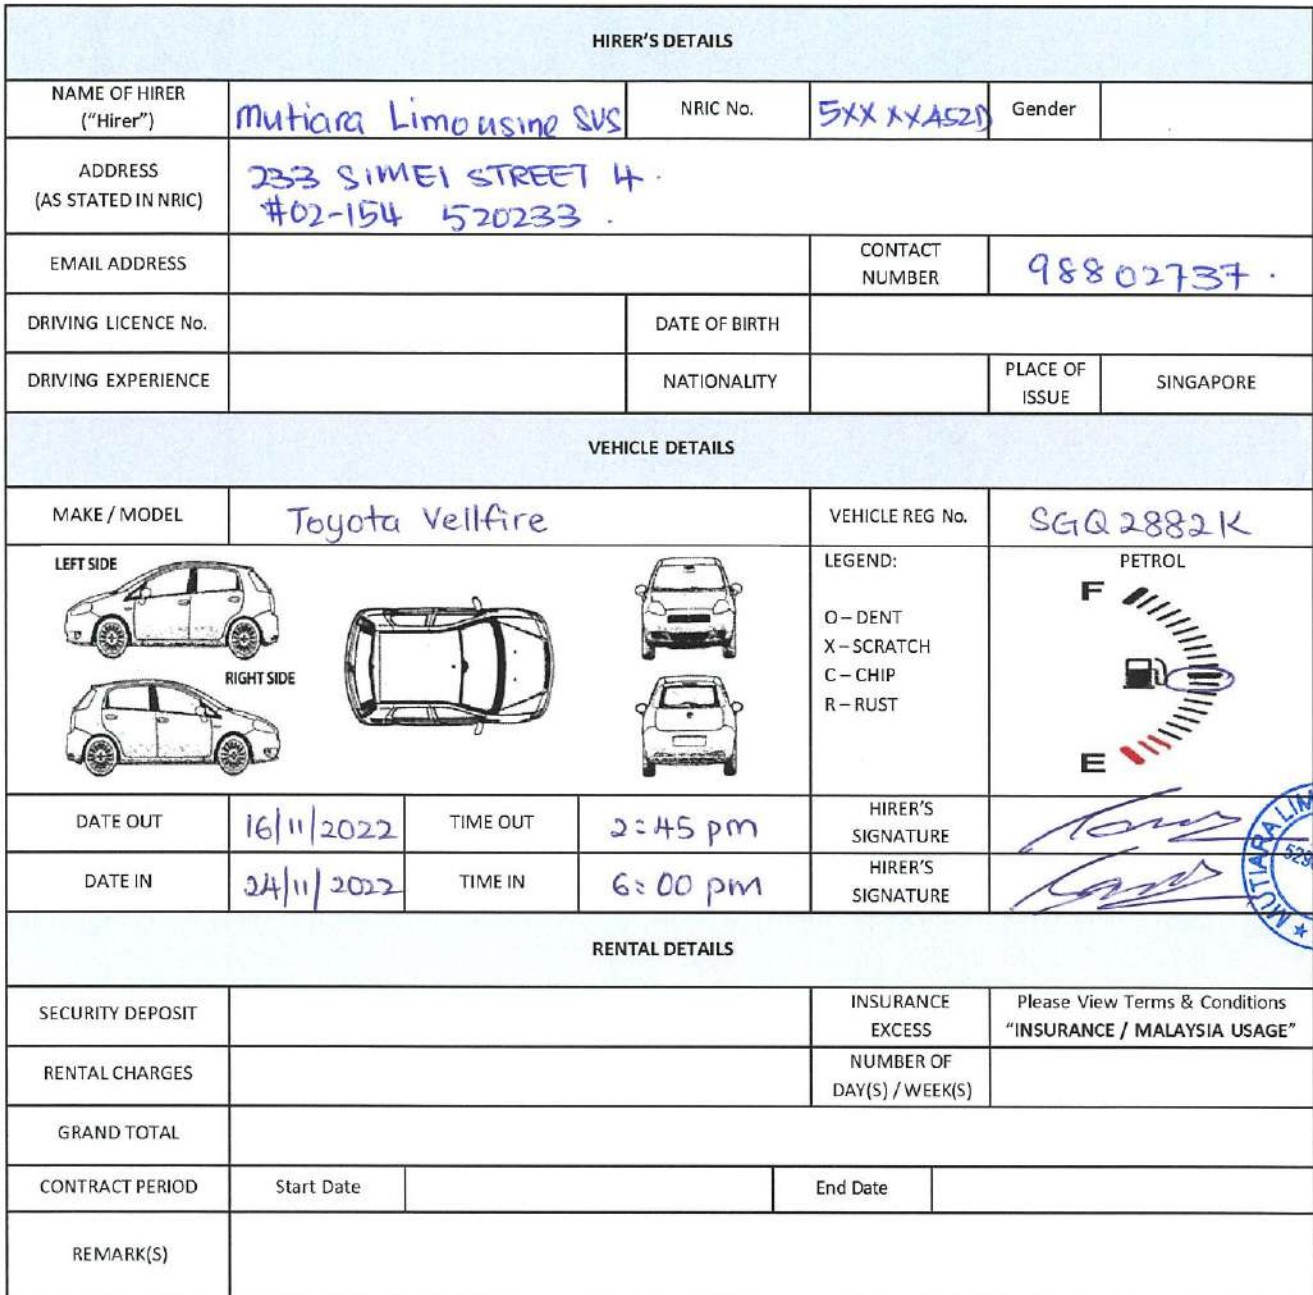 HIRER'S DETAILS
NAME OF HIRER
("Hirer")
Mutiara Limousine SVS
NRIC No.
5XX XXA52D
Gender
ADDRESS
(AS STATED IN NRIC)
233 SIMEI STREET 4.
#02-154 520233.
EMAIL ADDRESS
CONTACT
NUMBER
98802737.
DRIVING LICENCE No.
DATE OF BIRTH
DRIVING EXPERIENCE
NATIONALITY
PLACE OF
ISSUE
SINGAPORE
VEHICLE DETAILS
MAKE / MODEL
Toyota Vellfire
VEHICLE REG No.
SGQ2882K
LEFT SIDE
RIGHT SIDE
LEGEND:
O – DENT
X – SCRATCH
C – CHIP
R – RUST
PETROL
F
E
DATE OUT
16/11/2022
TIME OUT
2:45 pm
HIRER'S
SIGNATURE
DATE IN
24/11/2022
TIME IN
6:00 pm
HIRER'S
SIGNATURE
MUTIARA LIM
RENTAL DETAILS
SECURITY DEPOSIT
INSURANCE
EXCESS
Please View Terms & Conditions
"INSURANCE / MALAYSIA USAGE"
RENTAL CHARGES
NUMBER OF
DAY(S) / WEEK(S)
GRAND TOTAL
CONTRACT PERIOD
Start Date
End Date
REMARK(S)